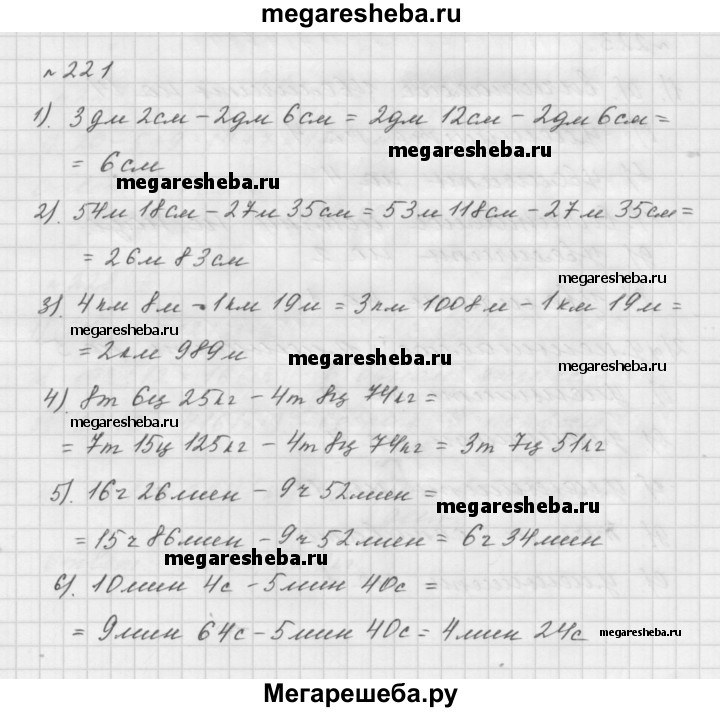 megaresheba.ru
№ 221
1). 3дм 2см – 2дм 6см = 2дм 12см – 2дм 6см =
megaresheba.ru
= 6см
megaresheba.ru
2). 54м 18см – 27м 35см = 53м 118см – 27м 35см =
= 26м 83см
megaresheba.ru
3). 4км 8м – 1км 19м = 3км 1008м – 1км 19м =
megaresheba.ru
= 2км 989м
megaresheba.ru
megaresheba.ru
4). 8т 6ц 25кг – 4т 8ц 74кг =
megaresheba.ru
= 7т 15ц 125кг – 4т 8ц 74кг = 3т 7ц 51кг
5). 16ч 26мин – 9ч 52мин =
megaresheba.ru
= 15ч 86мин – 9ч 52мин = 6ч 34мин
megaresheba.ru
6). 10мин 4с – 5мин 40с =
= 9мин 64с – 5мин 40с = 4мин 24с
megaresheba.ru
Мегарешеба.ру